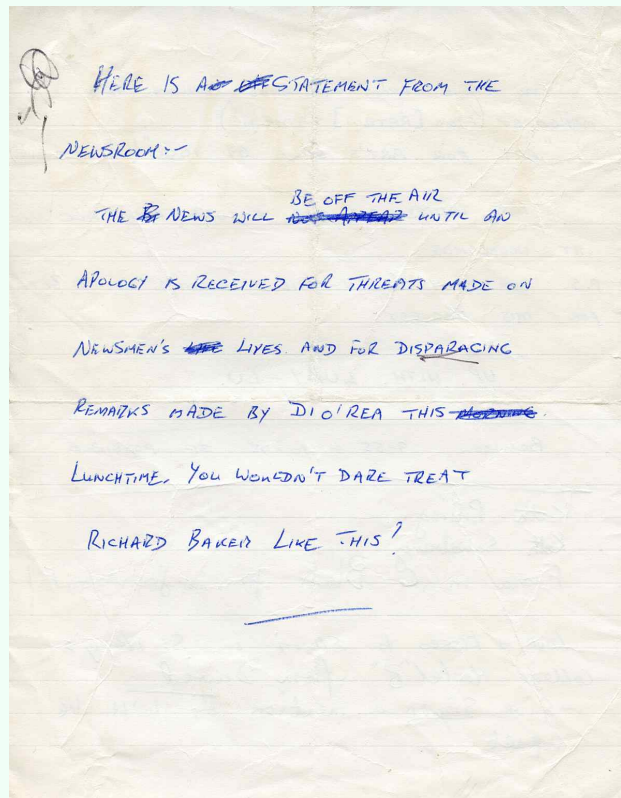 HERE IS A STATEMENT FROM THE
NEWSROOM:-
THE NEWS WILL BE OFF THE AIR UNTIL AN
APOLOGY IS RECEIVED FOR THREATS MADE ON
NEWSMEN'S LIVES AND FOR DISPARAGING
REMARKS MADE BY DI O'REA THIS
LUNCHTIME. YOU WOULDN'T DARE TREAT
RICHARD BAKER LIKE THIS!